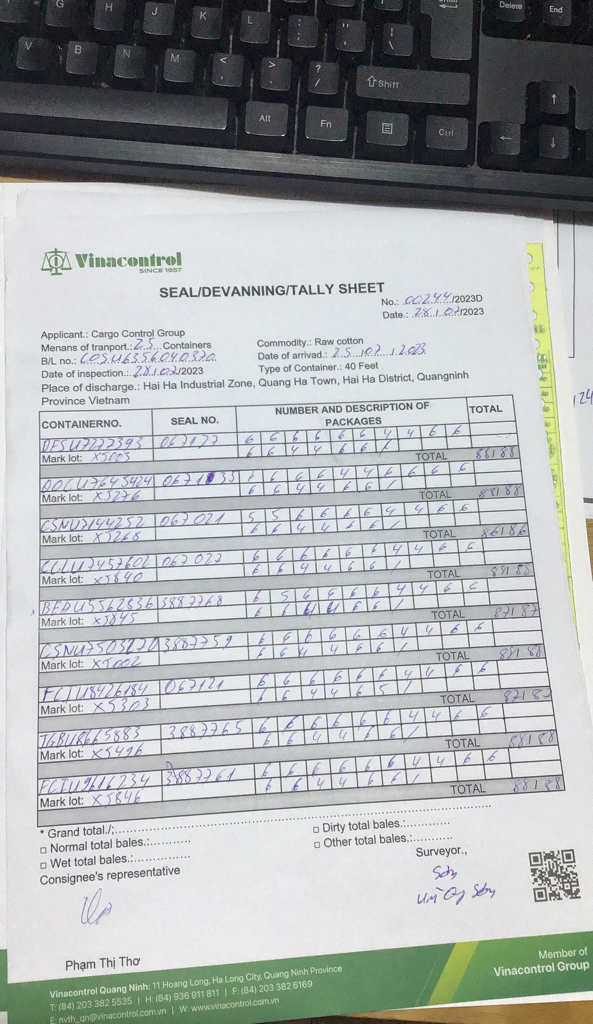 G H J K L : ; " ' Delete End
V B N M < , > . ? / Shift
Alt Fn Ctrl
Vinacontrol
SINCE 1957
SEAL/DEVANNING/TALLY SHEET
No.: 00244/2023D
Date.: 28/07/2023
Applicant.: Cargo Control Group
Menans of tranport.: 25 Containers
Commodity.: Raw cotton
B/L no.: COSU6356040320
Date of arrivad.: 25/07/2023
Date of inspection.: 28/07/2023
Type of Container.: 40 Feet
Place of discharge.: Hai Ha Industrial Zone, Quang Ha Town, Hai Ha District, Quangninh
Province Vietnam
CONTAINERNO. SEAL NO. NUMBER AND DESCRIPTION OF PACKAGES TOTAL
DFSU7222393 067127 6 6 6 6 6 6 4 4 6 6
6 6 4 4 6 6 /
Mark lot: X5003 TOTAL 88/88
OOCU7645424 6 6 6 6 4 4 6 6 6 6
6 6 4 4 6 6 /
Mark lot: X5276 TOTAL 88/88
CSNU7144252 067021 5 5 6 6 6 6 4 4 6 6
6 6 4 4 6 6 /
Mark lot: X5268 TOTAL 86/86
067027 6 6 6 6 6 6 4 4 6 6
6 6 4 4 6 6 /
Mark lot: X5840 TOTAL 88/88
3887768 6 5 6 6 6 6 4 4 6 6
6 6 4 4 6 6 /
Mark lot: X5845 TOTAL 87/87
3887759 6 6 6 6 6 6 4 4 6 6
6 6 4 4 6 6 /
Mark lot: X5002 TOTAL 88/88
FCIU8426184 067121 6 6 6 6 6 6 4 4 6 6
6 6 4 4 6 5 /
Mark lot: X5303 TOTAL 87/87
3887765 6 6 6 6 6 6 4 4 6 6
6 6 4 4 6 6 /
Mark lot: X5496 TOTAL 88/88
FCIU9616234 3887761 6 6 6 6 6 6 4 4 6 6
6 6 4 4 6 6 /
Mark lot: X5846 TOTAL 88/88
* Grand total./:
□ Normal total bales.:
□ Dirty total bales.:
□ Wet total bales.:
□ Other total bales.:
Consignee's representative
Surveyor.,
Sơn
Sơn
Phạm Thị Thơ
Vinacontrol Quang Ninh: 11 Hoang Long, Ha Long City, Quang Ninh Province
T: (84) 203 382 5535 | H: (84) 936 911 811 | F: (84) 203 382 6169
E: nvth_qn@vinacontrol.com.vn | W: www.vinacontrol.com.vn
Member of
Vinacontrol Group